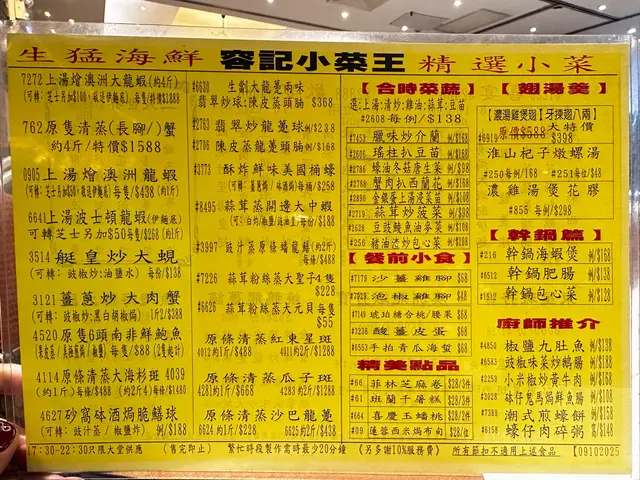 生猛海鮮 容記小菜王 精選小菜
7272上湯燴澳洲大龍蝦(約4斤)
762原隻清蒸(長腳/)蟹
約4斤/特價$1588
0905上湯燴澳洲龍蝦
6641上湯波士頓龍蝦(伊麵底)
可轉芝士另加$50每隻/$268(約1斤)
3514艇皇炒大蜆
(可轉：豉椒炒:油鹽水) 每份$138
3121薑蔥炒大肉蟹
(可轉：豉椒炒:黑白胡椒焗) 1斤2/$388
4520原隻6頭南非鮮鮑魚
每隻/$88 (2隻起計)
4114原條清蒸大海杉斑 4039
(約1斤)$488 (約2斤4)$1480
4627砂窩砵酒焗脆鱔球
(可轉：豉汁蒸/椒鹽炸) 例/$188
#6630 生當大龍躉兩味
翡翠炒球:陳皮蒸頭腩 $368
#2763 翡翠炒龍躉球例/$238
#2706 陳皮蒸龍躉頭腩例/$168
#3773 酥炸鮮味美國桶蠔
#8495 蒜茸蒸開邊大中蝦
每份/$188
#3997 豉汁蒸原條蟠龍鱔(約2斤)
每條/$488
#7226 蒜茸粉絲蒸大聖子4隻
$228
#6626 蒜茸粉絲蒸大元貝每隻
$55
原條清蒸紅東星斑
4012約1斤/$488 4011約2斤/$1288
原條清蒸瓜子斑
4281約1斤/$688 4283約2斤/$1288
原條清蒸沙巴龍躉
6624約1斤/$228 6625約2斤/$438
【合時菜蔬】
選:上湯:清炒:雞油:蒜茸:豆苗
#2608每例/$138
#7453 臘味炒介蘭 例/$168
#2605 瑤柱扒豆苗 例/$168
#2786 蠔油冬菇唐生菜 例/$98
#2788 蟹肉扒西蘭花 例/$168
#2898 金銀蛋上湯浸菜苗 例/$108
#2719 蒜茸炒菠菜 例/$98
#2628 豆豉鯪魚油麥菜 例/$108
#256 豬油渣炒包心菜 例/$108
【餐前小食】
#7179 沙薑雞腳 $68
#7125 泡椒雞腳 $48
#7149 琥珀糖合桃/腰果 $68
#2236 酸薑皮蛋 $68
#6553 手拍青瓜海蜇 $68
精美點品
#66 菲林芝麻卷 $28/3件
#61 班蘭千層糕 $28/3件
#664 喜慶玉蟠桃 $28/2件
#09 蓮蓉西米焗布甸 $28/位
【翅湯羹】
【濃湯雞煲翅】【牙揀翅八兩】
#6919 原價$588 大特價$398
淮山杞子燉螺湯
#250每例/168 #251每位/$48
濃雞湯煲花膠
#855 每例/$298
【幹鍋篇】
#216 幹鍋海蝦煲 例/$168
#6512 幹鍋肥腸 例/$138
#1512 幹鍋包心菜 例/$128
廚師推介
#4850 椒鹽九肚魚 例/$138
#6583 豉椒味菜炒鵝腸 例/$168
#2253 小井椒炒黃牛肉 例/$168
#3028 砵仔鬼馬焗鮮魚腸 例/$168
#7389 潮式煎蠔餅 例/$158
#6158 蠔仔肉碎粥 窩/$148
17:30-22:30只限大堂供應 (售完即止) 繁忙時段製作需時最少20分鐘 《另多謝10%服務費》 所有節扣不適用上述食品 【09102025